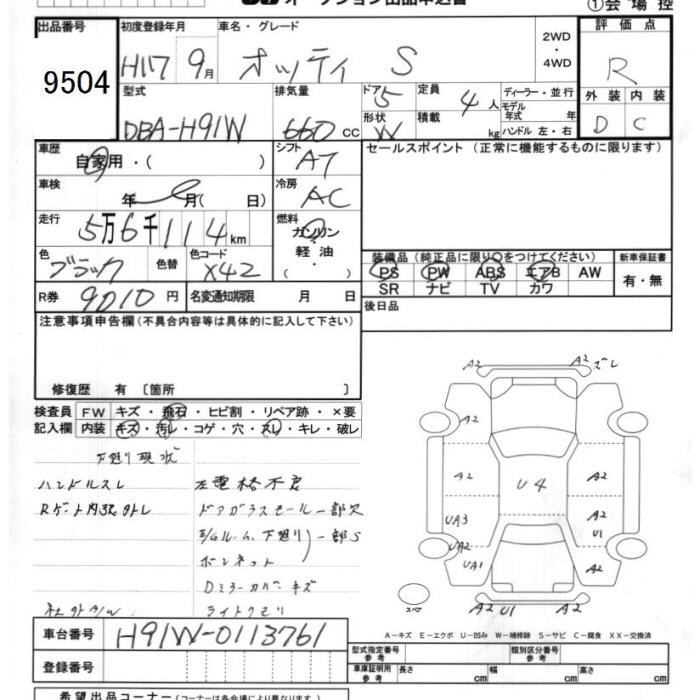 ①会場控
出品番号 初度登録年月 車名・グレード 2WD・4WD 評価点
9504 H17 9月 オッティ S R
型式 排気量 ドア 定員 ディーラー・並行 外装 内装
DBA-H91W 660 cc 5 4人 モデル年式 年 D C
形状 積載 kg ハンドル 左・右
W
車歴 シフト セールスポイント（正常に機能するものに限ります）
自家用・( ) AT
車検 冷房
年 月( 日) AC
走行 燃料
5万6千114km ガソリン・軽油・( )
色 色替 色コード 装備品（純正品に限り○をつけてください） 新車保証書
ブラック X42 PS PW ABS エアB AW 有・無
SR ナビ TV カワ
R券 9010円 名変通知期限 月 日 後日品
注意事項申告欄（不具合内容等は具体的に記入して下さい）
修復歴 有 〔箇所 〕
検査員 FW キズ・飛石・ヒビ割・リペア跡・×要
記入欄 内装 キズ・汚レ・コゲ・穴・スレ・キレ・破レ
下廻り現状
ハンドルスレ 左電格不良
Rゲート内張外レ ドアガラスモール一部欠
E/Gルーム、下廻り 一部S
ボンネット
Dミラーカバーキズ
社外A/W ライトクモリ
A2 A2 ズレ
A2
A2 U4 A2
UA3 A2
U1
UA2
UA1 A2
スペア A2 U1 A2
A－キズ E－エクボ U－凹み W－補修跡 S－サビ C－腐食 XX－交換済
車台番号 H91W-0113761
登録番号
型式指定番号 参考 類別区分番号 参考
車庫証明用 参考 長さ cm 幅 cm 高さ cm
希望出品コーナー（コーナーは各会場により異なります。）